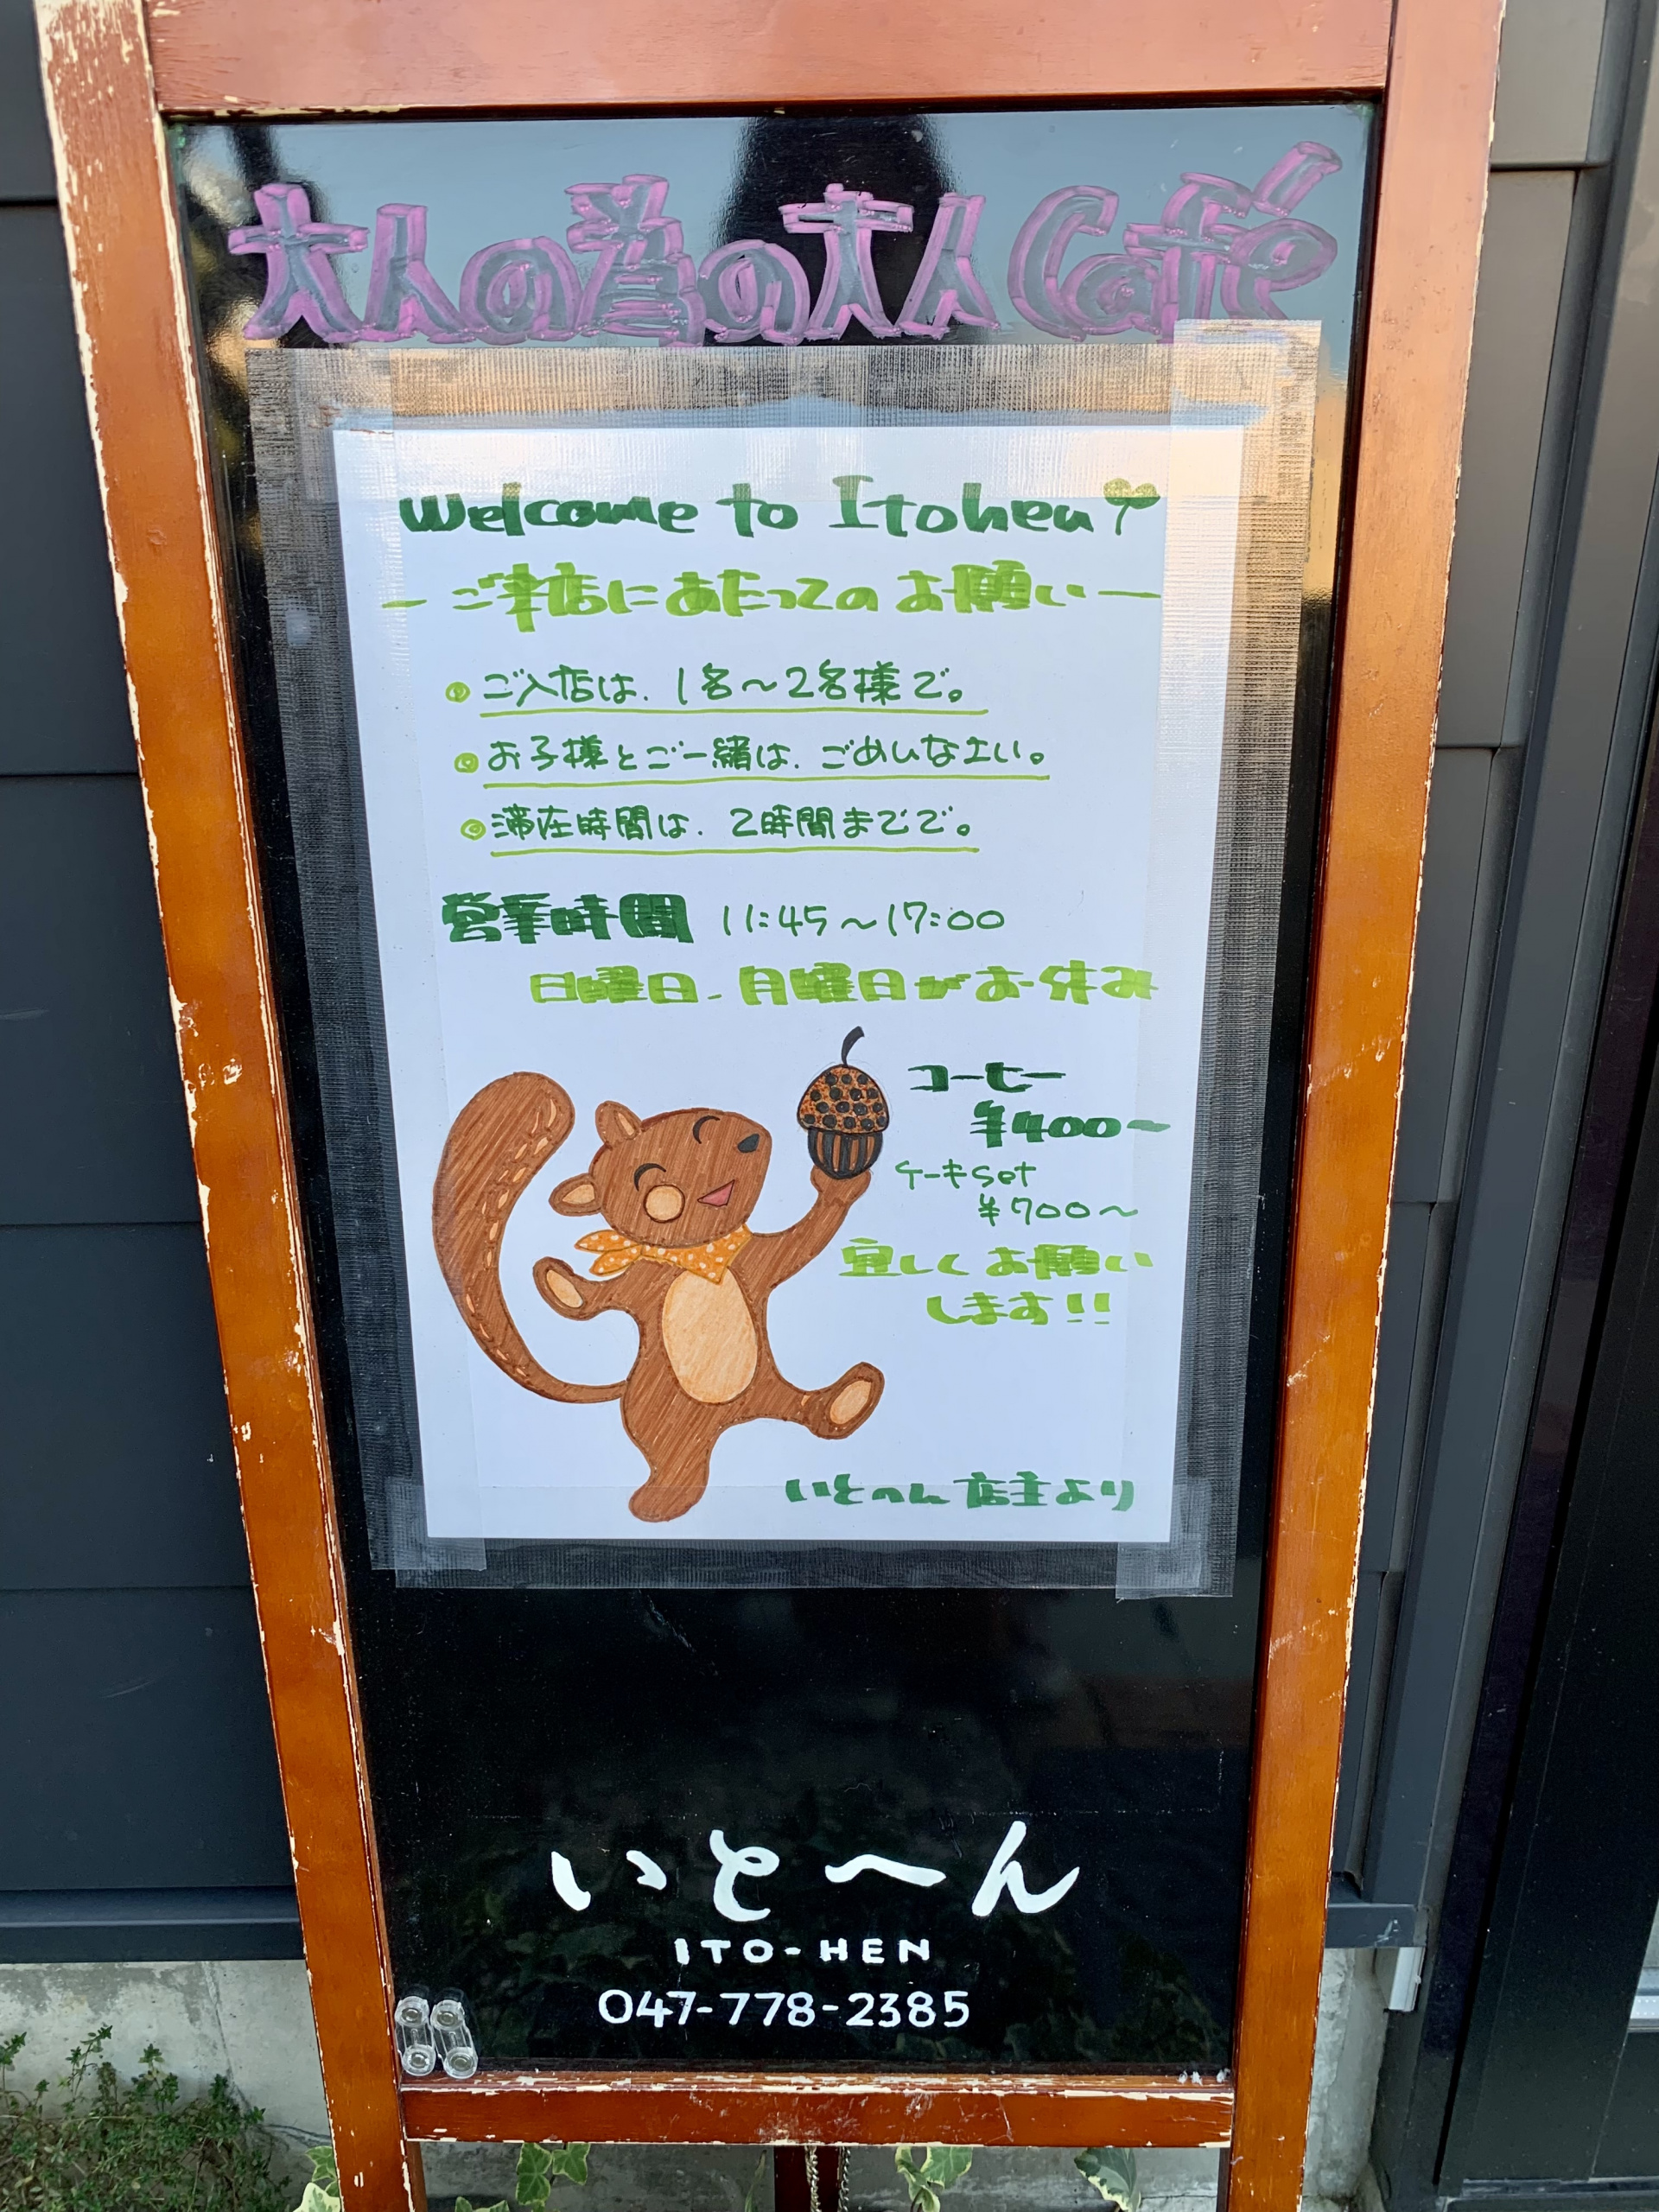 大人の為の大人Café
Welcome to Itohen
－ご来店にあたってのお願い－
ご入店は、1名～2名様で。
お子様とご一緒は、ごめんなさい。
滞在時間は、2時間までで。
営業時間 11:45～17:00
日曜日、月曜日がお休み
コーヒー
¥400～
ケーキset
¥700～
宜しくお願い
します!!
いとへん店主より
いとへん
ITO-HEN
047-778-2385